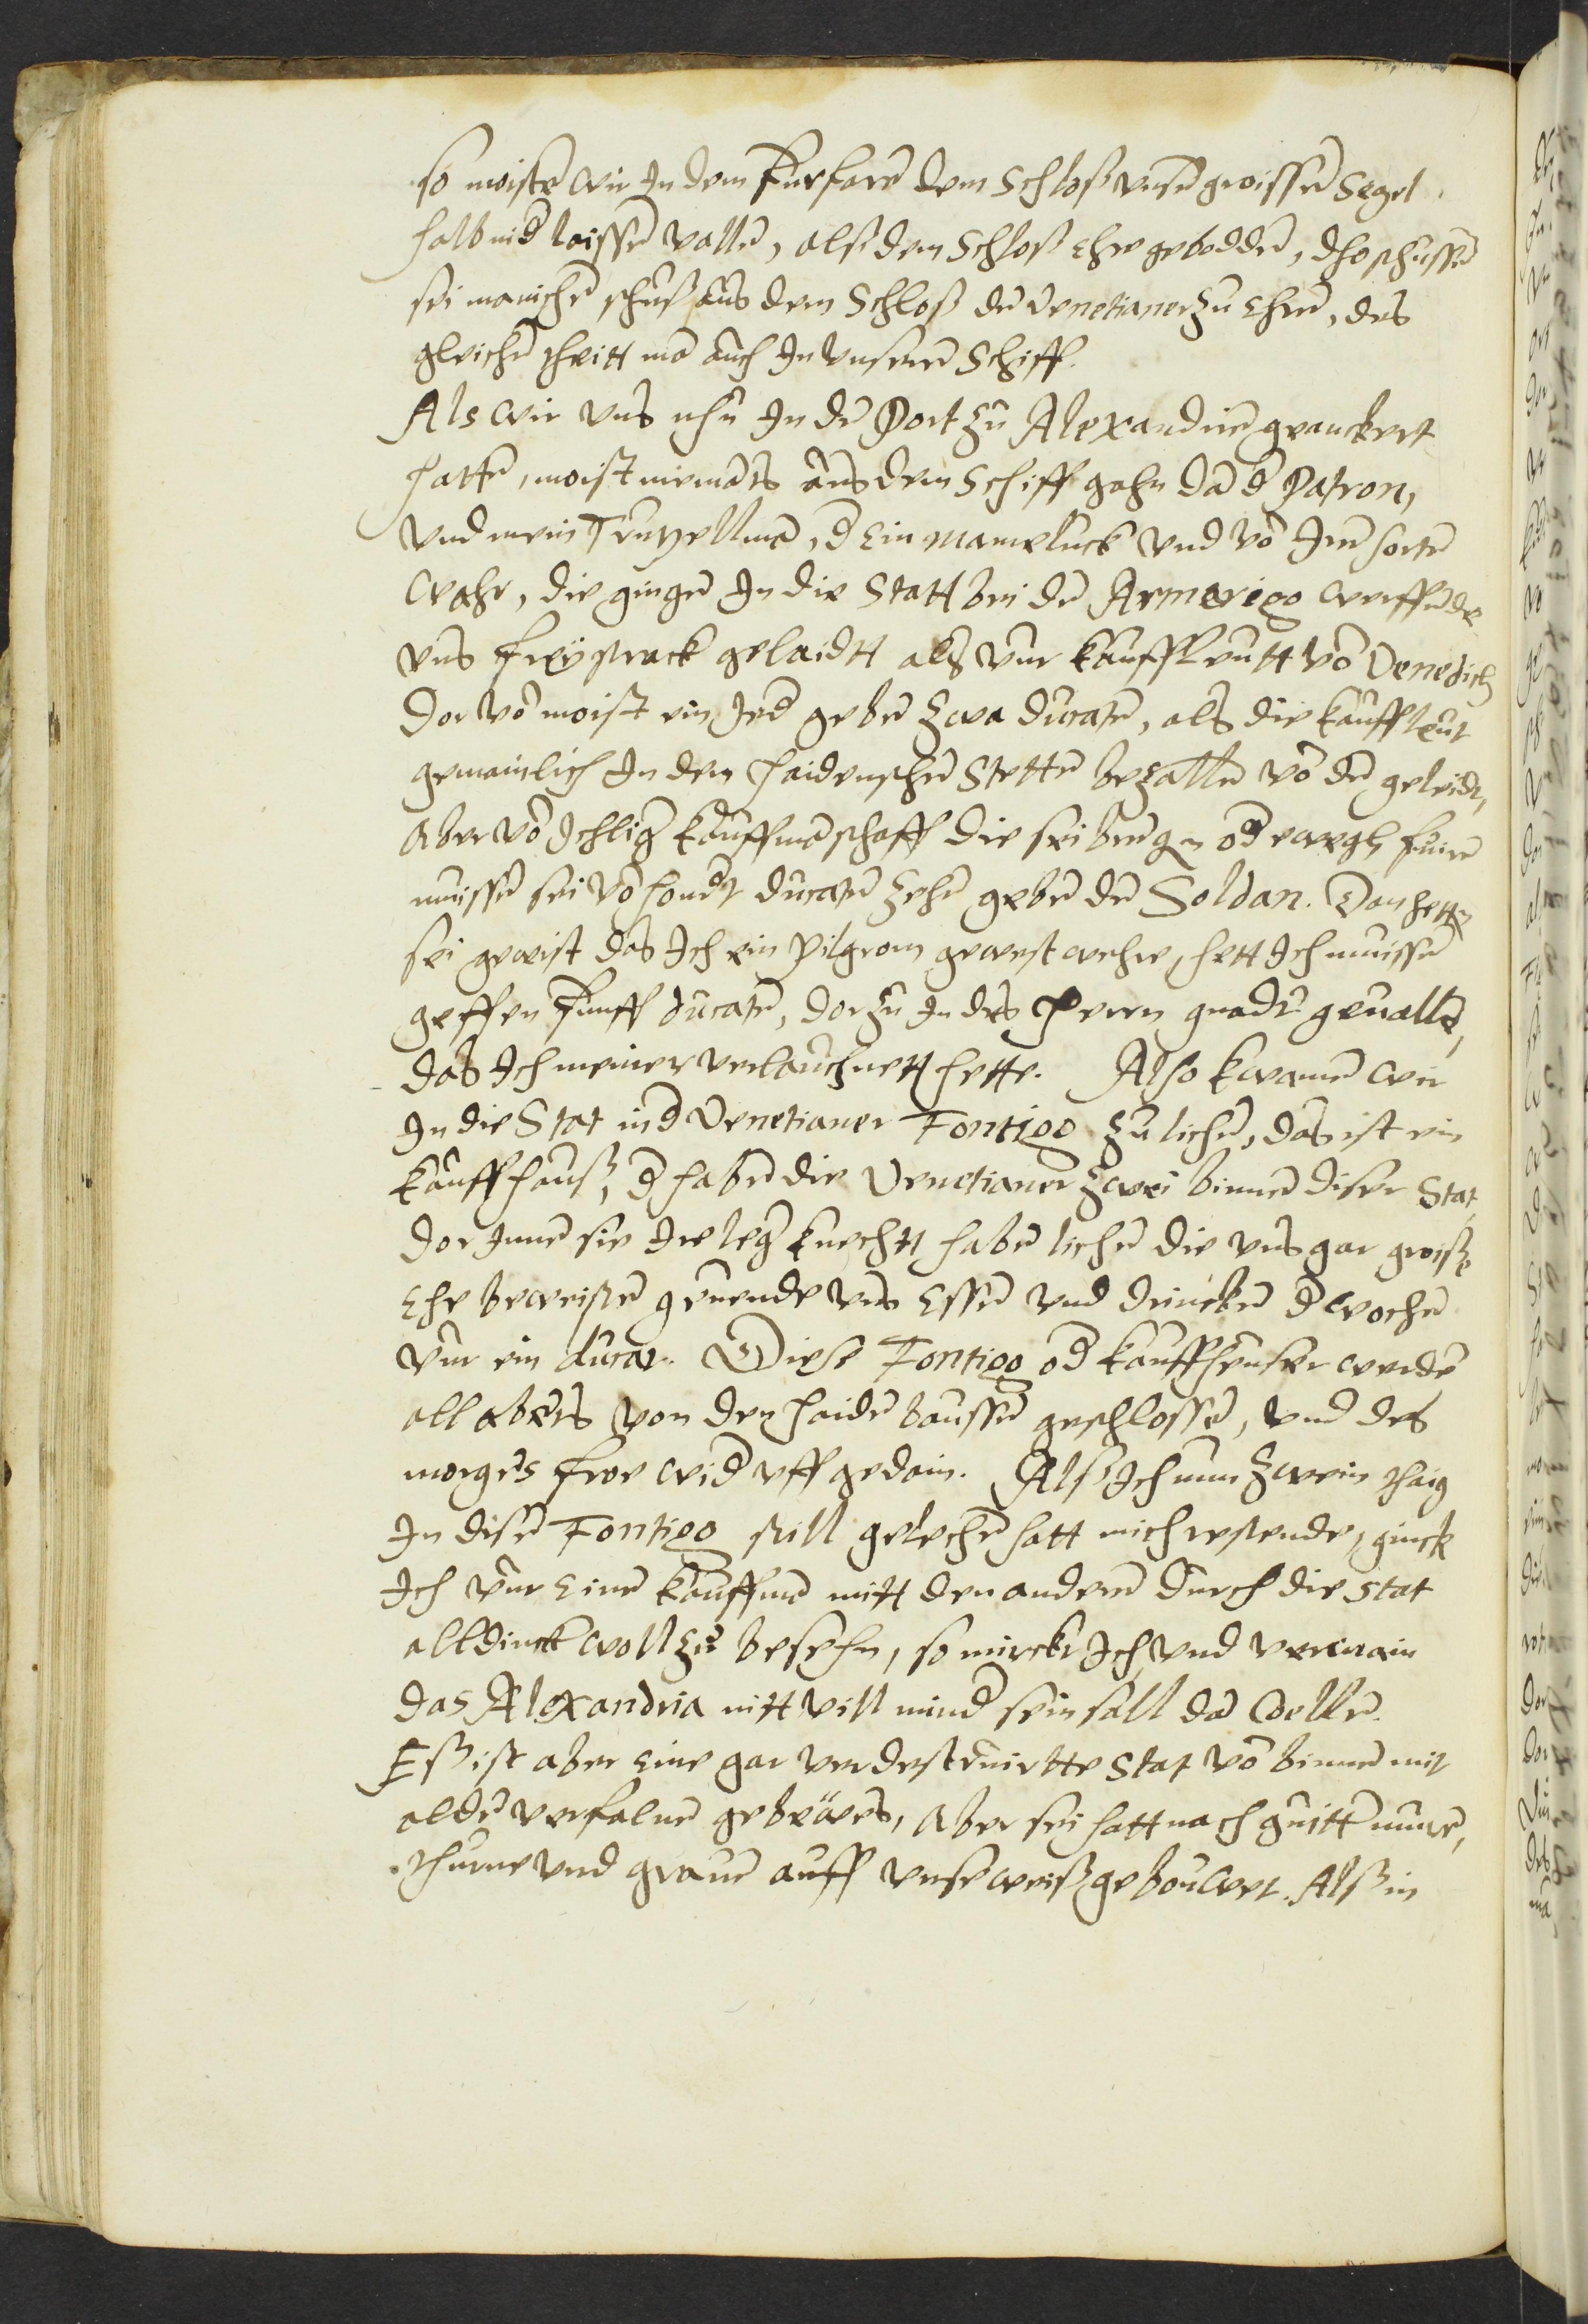 so moiste wir In dem furfare dem Schloß unse groissen Segel
halb nid laissen vallen, alß dem Schloß Ehre gebodden, dho schussen
sei manichen schuß aus dem Schloß den Venetianer zu Ehren, des
gleichen thritt ma auch In unseren Schiff.
Als wir uns nhu In de Port zu Alexandrie geanckert
hatten, moist niemats aus dem Schiff gahn dan d Patron,
und mein Trutzellman, d Ein Mameluck und vo Iren sorten
wahr, die gingen In die Statt bei den Armerigo
uns freystrack gelaidtt als vur kauffleutt vo Venedich
dar vo moist ein Jed geben zwa ducaten, als die kauffleut
gemainlich In den haidenschen Stetten bezallen vo den geleide,
aber vo Ichlig kauffmaschaff die sei brengen od ewegh fuiren
muissen sei vo hondt ducaten zehn geben den Soldan. Dan hetten
sei gewist das Ich ein Pilgrom gewest wehre, hett Ich muissen
geffen funff ducaten, dar zu In des Herrn gnade gevallen,
das Ich meiner verlauchnett hette. Also kwamen wir
In die Stat in d Venetianer Fontigo zu lichen, das ist ein
kauffhauß, d haben die Venetianer zwei binnen diser Stat
dar Innen sie Ire leg knechtt haben lichen die uns gar groiße
Ehr beweisten gevende uns Essen und drincken d wochen
vur ein ducat. Diese Fontigo od kauffheuser werden
all abets von den haiden baussen geschlossen, und des
morgens froe wid uff gedain. Alß Ich nun zwein thaig
In disen Fontigo still gelechen hatt mich restende, ginck
Ich vur Einen kauffman mitt den anderen durch die Stat
alldinck woll zu besehn, so mircke Ich und vermain
das Alexandria nitt vill mind sein sall dan Coellen.
Eß ist aber Eine gar verdestruirtte Stat vo binnen mit
alden verfalnen gebewes, aber sei hatt nach guitt mure,
thurne und graven auff unse weiß gebouwet. Alß in